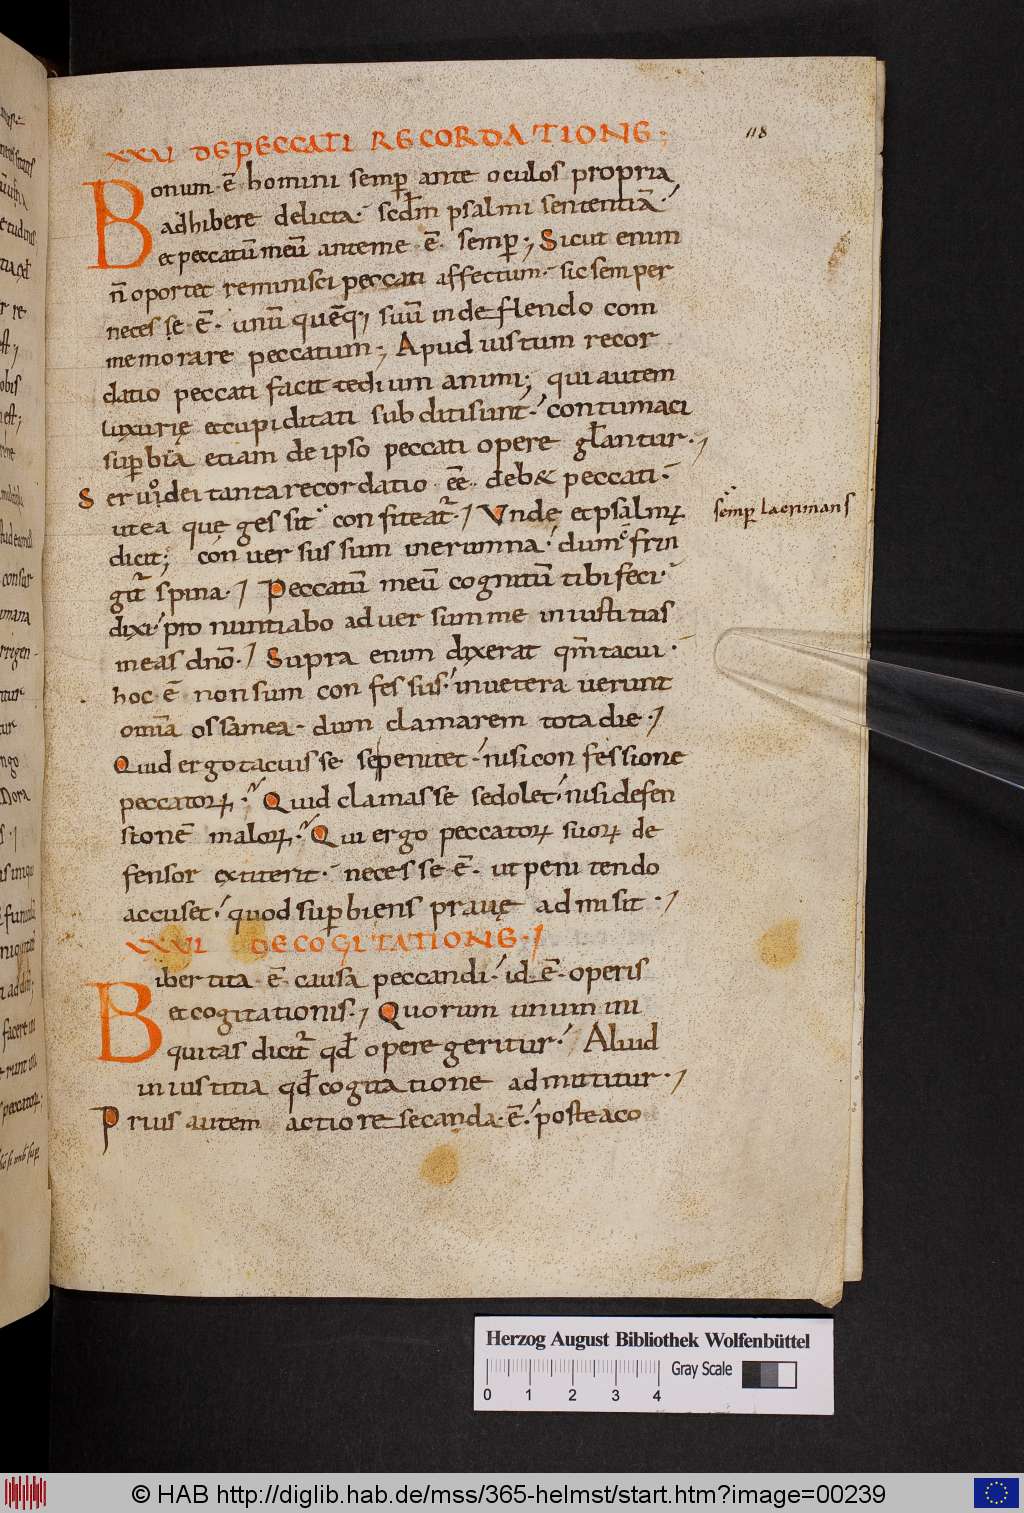 118
XXV DE PECCATI RECORDATIONE;
Bonum ē homini semꝑ ante oculos propria
adhibere delicta. scd̄m psalmi sententiā.
et peccatū meū ante me ē. semꝑ; Sicut enim
n̄ oportet reminisci peccati affectum. sic semper
necesse ē. unū quēq; suū in deflendo com
memorare peccatum; Apud iustum recor
datio peccati facit tedium animi; qui autem
luxurię et cupiditati subditi sunt. contumaci
suꝑbia etiam de ipso peccati opere gl̄antur.;
Serui dei tanta recordatio eē. deb& peccati.
ut ea que gessit confiteat᷑. Vnde et psalmꝝ
dicit; conuersus sum in erumna. dum frin
git᷑ spina. Peccatū meū cognitū tibi feci.
dixi. pronuntiabo aduersum me iniustitias
meas dn̄o. Supra enim dixerat qm̄ tacui.
hoc ē non sum confessus. inueterauerunt
omīa ossa mea. dum clamarem tota die.
Quid ergo tacuisse se penitet. nisi confessione
peccatoꝝ. Quid clamasse se dolet. nisi defen
sionē maloꝝ. Qui ergo peccatoꝝ suoꝝ de
fensor extiterit. necesse ē. ut penitendo
accuset. quod suꝑbiens prauę admisit.
semꝑ
XXVI DE COGITATIONE.
Bibertita ē causa peccandi. id ē. operis
et cogitationis.; Quorum unum ini
quitas dicit᷑ qd̄ opere geritur. Aliud
iniustitia qd̄ cogitatione admittitur.
Prius autem actio resecanda. ē. postea co
Herzog August Bibliothek Wolfenbüttel
Gray Scale
0 1 2 3 4
© HAB http://diglib.hab.de/mss/365-helmst/start.htm?image=00239